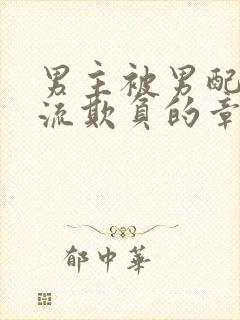 男主被男配
流欺负的章
郁中華